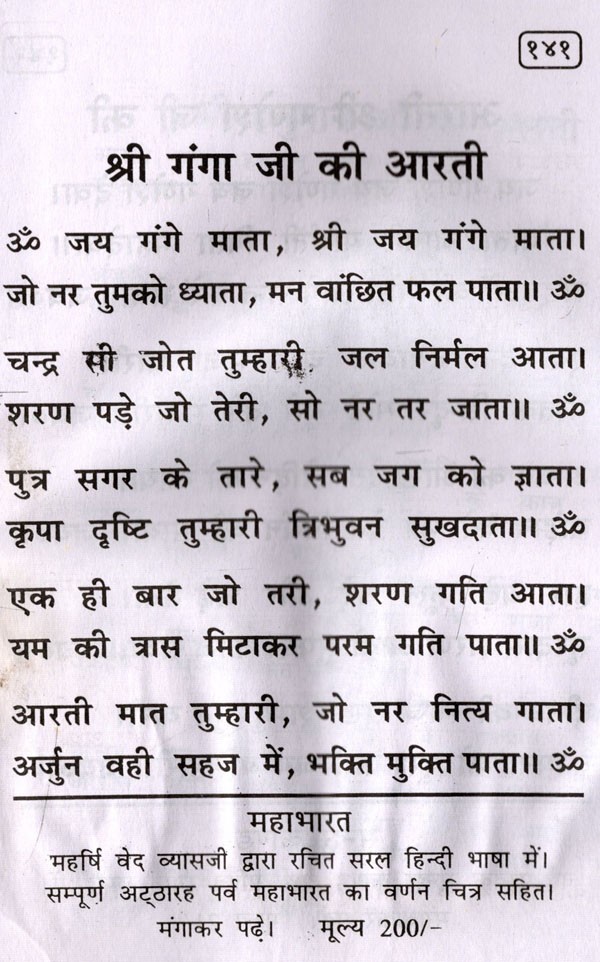 १४१
श्री गंगा जी की आरती
ॐ जय गंगे माता, श्री जय गंगे माता।
जो नर तुमको ध्याता, मन वांछित फल पाता॥ ॐ
चन्द्र सी जोत तुम्हारी जल निर्मल आता।
शरण पड़े जो तेरी, सो नर तर जाता॥ ॐ
पुत्र सगर के तारे, सब जग को ज्ञाता।
कृपा दृष्टि तुम्हारी त्रिभुवन सुखदाता॥ ॐ
एक ही बार जो तरी, शरण गति आता।
यम की त्रास मिटाकर परम गति पाता॥ ॐ
आरती मात तुम्हारी, जो नर नित्य गाता।
अर्जुन वही सहज में, भक्ति मुक्ति पाता॥ ॐ
महाभारत
महर्षि वेद व्यासजी द्वारा रचित सरल हिन्दी भाषा में।
सम्पूर्ण अट्ठारह पर्व महाभारत का वर्णन चित्र सहित।
मंगाकर पढ़े। मूल्य 200/-